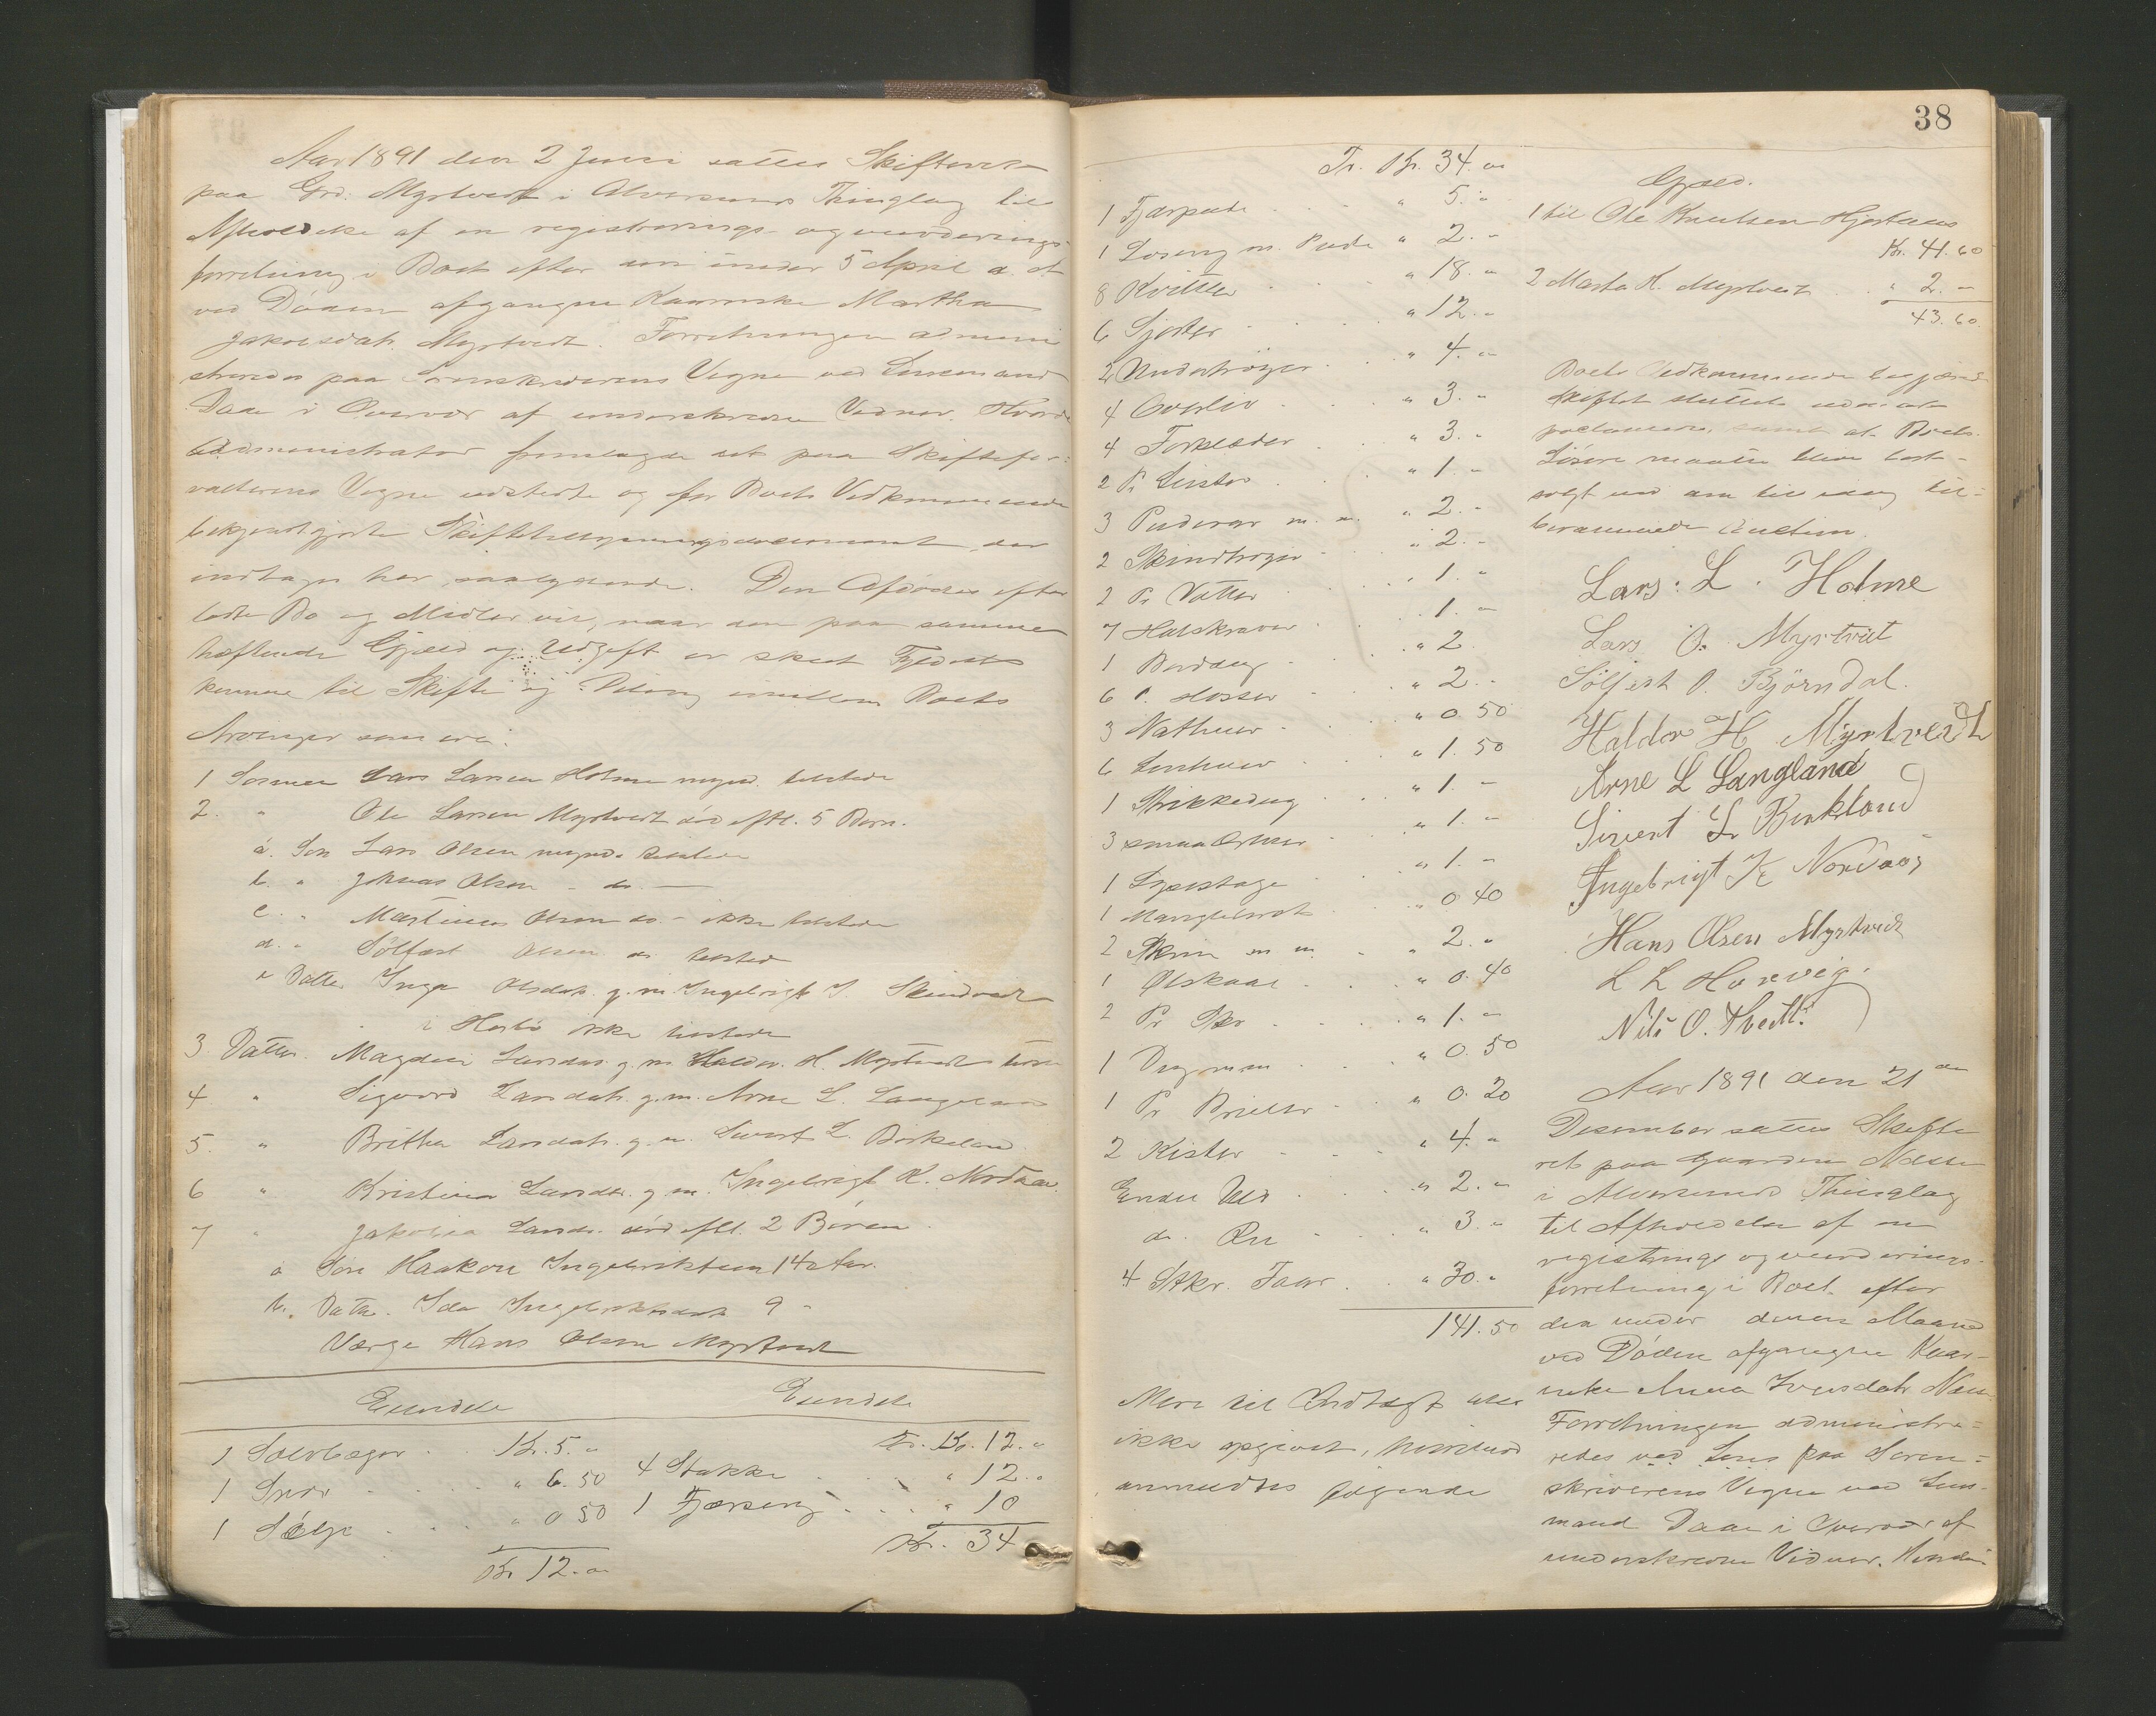 Aar 1891 den 2 Juni sattes Skifteret
paa Grd. Myrtvedt i Alversunds Thinglag til
Afholdelse af en registrerings- og vurderings-
forretning i Boet efter den under 5 April d. A.
ved Døden afgangne Kaarenke Martha
Jakobsdatr. Myrtvedt. Forretningen admini
streredes paa Sorenskriverens Vegne ved Lensmand
Daae i Overvær af underskrevne Vidner. Hvorda
Administrator fremlagde det paa Skiftefor-
valterens Vegne udstedte og for Boets Vedkommende
bekjendtgjorte Skiftetilsynsdocument, der
indtages her saalydende. Den Afdødes efter
ladte Bo og Midler vil, naar den paa samme
hæftende Gjæld og Udgift er skeet Fyldest
komme til Skifte og Deling imellem Boets
Arvinger som ere:
1 Sønnen Lars Larsen Holme mynd. tilstede
2. " Ole Larsen Myrtvedt død eftl. 5 Børn.
a. Søn Lars Olsen mynd. tilstede
b. " Johnas Olsen - do. -
c. " Martinus Olsen do - ikke tilstede
d. " Sølfæst Olsen do tilstede
e Datter Inga Olsdatr. g. m. Ingebrigt J.
i ikke tilstede
3. Datter. Magdeli Larsdtr. g. m. Haldor. H. Myrtvedt
4 " Sigvord Larsdatr. g. m. Arne L. Langeland
5. " Britha Larsdatr. g. m. Sivert L. Birkeland
6 " Kristina Larsdtr. g. m. Ingebrigt K. Nordaas
7 " Jakobia Larsdr. død eftl. 2 Børn
a Søn Haakon Ingebrektsen 14 Aar.
b. Datter. Ida Ingebrektsdatr 9 -
Værge Hans Olsen Myrtvedt
Eiendele Eiendele
1 Sølvbæger Kr. 5. " Tr. Kr. 12. "
1 " 6. 50 4 Stakke " 12. "
1 Sølje " 0 50 1 Fjærseng " 10
Kr 12. " Kr. 34
38
Tr. Kr. 34. "
1 Fjærpude " 5. "
1 m. Pude " 2. -
8 Kvitler " 18. "
6 Sjorter " 12. -
2 Undertrøyer " 4. "
4 Overliv " 3. -
4 Forklæder " 3. -
2 Pr " 1. -
3 Pudevar m. m. " 2. -
2 Skindtrøyer " 2. -
2 Pr Vatter " 1. -
7 Halskraver " 1. -
1 Borddug " 2.
6 P. Hosser " 2. -
3 Nathuer " 0. 50
6 Linhuer " 1. 50
1 Strikkedug " 1. -
3 smaa " 1. -
1 Lysestage " 1. -
1 " 0 40
2 Skrin m. m. " 2. "
1 Ølskaal " 0. 40
2 Pr Sko " 1. "
1 Dug m m " 0. 50
1 Pr Briller " 0. 20
2 Kister " 4. "
Endel Uld " 2. "
do. " 3. "
4 Stkr. Faar " 30. "
141. 50
Mere til Indtægt blev
ikke opgivet, hvorimod
anmeldtes følgende
Gjæld.
1 til Ole Knutsen Hjertaas
Kr. 41. 60
2 Marta H. Myrtvedt " 2. -
43. 60.
Boets Vedkommende begjærede
skiftet sluttet
samt at Boets
Løsøre maatte blive bort-
solgt ved den til idag
berammede Auction.
Lars. L. Holme
Lars O. Myrtveit
Sölfest O. Björndal.
Haldor H Myrtveidt
Arne L Langland
Sivert L Birkland
Ingebrigt K Nordaas
Hans Olsen Myrtvedt
L L Hopevig.
Nils O. Tveitt.
Aar 1891 den 21 de
Desember sattes Skifte
ret paa Gaarden Næsse
i Alversunds Thinglag
til Afholdelse af en
registrings og vurderings-
forretning i Boet efter
den under denne Maaned
ved Døden afgangne Kaar-
enke Anna Iversdatr Næss
Forretningen administre-
redes ved Lens paa Soren-
skriverens Vegne ved Lens-
mand Daae i Overvær af
underskrevne Vidner. Hvorda